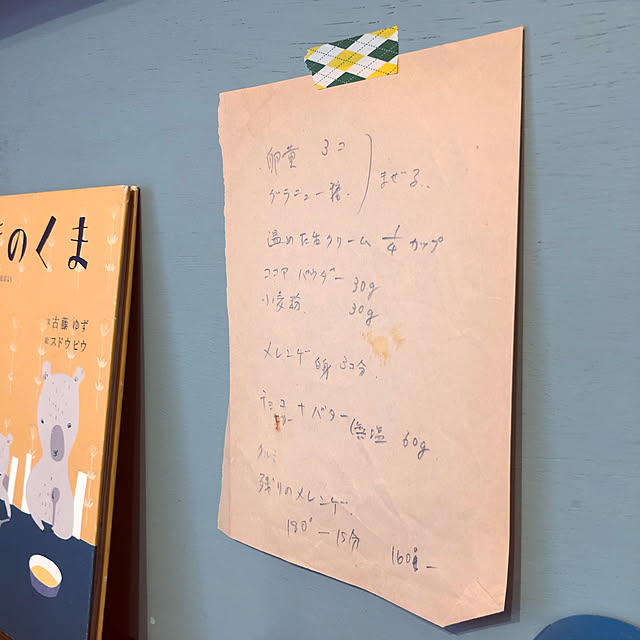 のくま
古藤ゆず
スドウピウ
卵黄 3コ
グラニュー糖. まぜる.
温めた生クリーム 1/4 カップ
ココア パウダー 30g
小麦粉 30g
メレンゲ 白身 3コ分.
チョコ + バター (無塩 60g
クルミ
残りのメレンゲ.
180° — 15分 160°—